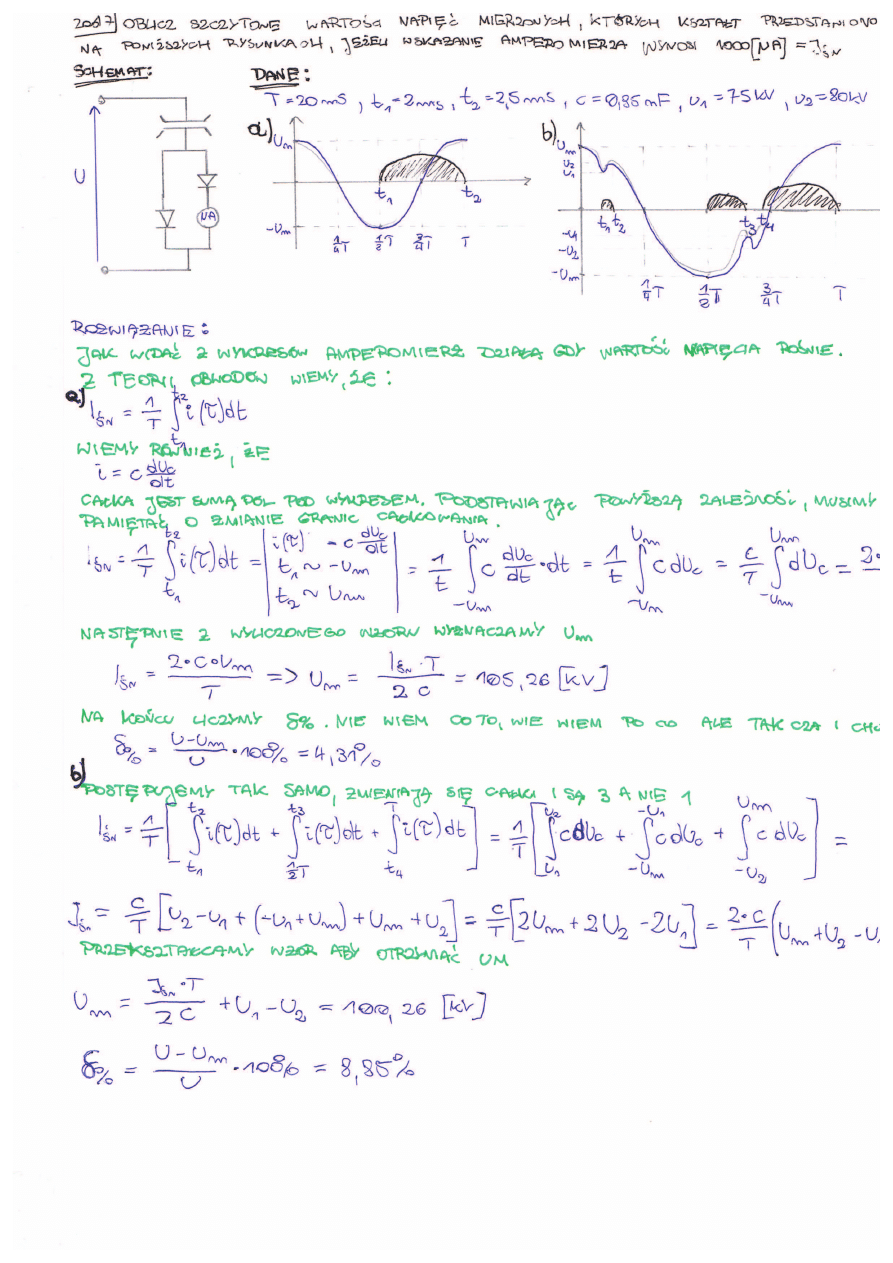 2007 OBLICZ SZCZYTOWE WARTOŚCI NAPIĘĆ MIERZONYCH, KTÓRYCH KSZTAŁT PRZEDSTAWIONO
NA PONIŻSZYCH RYSUNKACH, JEŻELI WSKAZANIE AMPEROMIERZA WYNOSI 1000[μA] = Iśr
SCHEMAT:
DANE:
T=20ms, t1=2ms, t2=2,5ms, c=0,95mF, U1=75kV, U2=80kV
a) Um
-Um
t1 t2
1/4T 1/2T 3/4T T
b) Um
U2
U1
-U1
-U2
-Um
t1 t2 t3 t4
1/4T 1/2T 3/4T T
U
μA
ROZWIĄZANIE:
JAK WIDAĆ Z WYKRESÓW AMPEROMIERZ DZIAŁA GDY WARTOŚĆ NAPIĘCIA ROŚNIE.
Z TEORII OBWODÓW WIEMY, ŻE:
a)
Iśr = 1/T ∫t1^t2 i(τ)dt
WIEMY RÓWNIEŻ, ŻE
i = c dUc/dt
CAŁKA JEST SUMĄ PÓL POD WYKRESEM. PODSTAWIAJĄC POWYŻSZĄ ZALEŻNOŚĆ, MUSIMY
PAMIĘTAĆ O ZMIANIE GRANIC CAŁKOWANIA.
Iśr = 1/T ∫t1^t2 i(τ)dt = | i(τ) = c dUc/dt; t1 ~ -Um; t2 ~ Um | = 1/t ∫-Um^Um c dUc/dt · dt = 1/t ∫-Um^Um c dUc = c/T ∫-Um^Um dUc = 2·
NASTĘPNIE Z WYLICZONEGO WZORU WYZNACZAMY Um
Iśr = 2·C·Um/T => Um = Iśr·T/2C = 105,26 [kV]
NA KOŃCU LICZYMY δ%. NIE WIEM CO TO, WIE WIEM PO CO ALE TAK CZA I CHO
δ% = U-Um/U · 100% = 4,31%
b)
POSTĘPUJEMY TAK SAMO, ZMIENIAJĄ SIĘ CAŁKI I SĄ 3 A NIE 1
Iśr = 1/T [ ∫t1^t2 i(τ)dt + ∫1/2T^t3 i(τ)dt + ∫t4^T i(τ)dt ] = 1/T [ ∫U1^U2 cdUc + ∫-Um^-U1 cdUc + ∫-U2^Um c dUc ] =
Iśr = c/T [U2-U1+(-U1+Um)+Um+U2] = c/T [2Um+2U2-2U1] = 2·c/T (Um+U2-U
PRZEKSZTAŁCAMY WZÓR ABY OTRZYMAĆ UM
Um = Iśr·T/2C + U1-U2 = 100,26 [kV]
δ% = U-Um/U · 100% = 8,85%